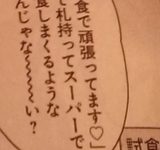 食で頑張ってます♡」
で札持ってスーパーで
食しまくるような
んじゃな〜〜〜い?
試食